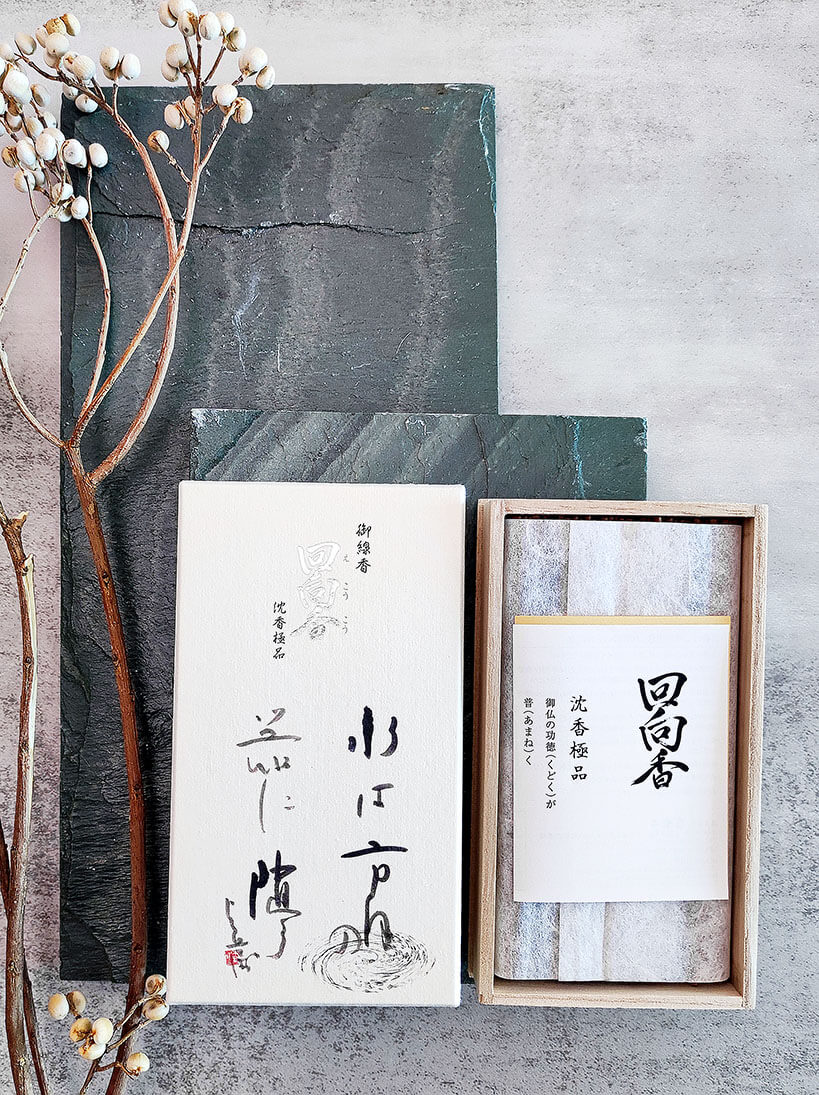 御線香
回向香
え こう こう
沈香極品
水は方円
器に随う
回向香
沈香極品
御仏の功徳(くどく)が
普(あまね)く